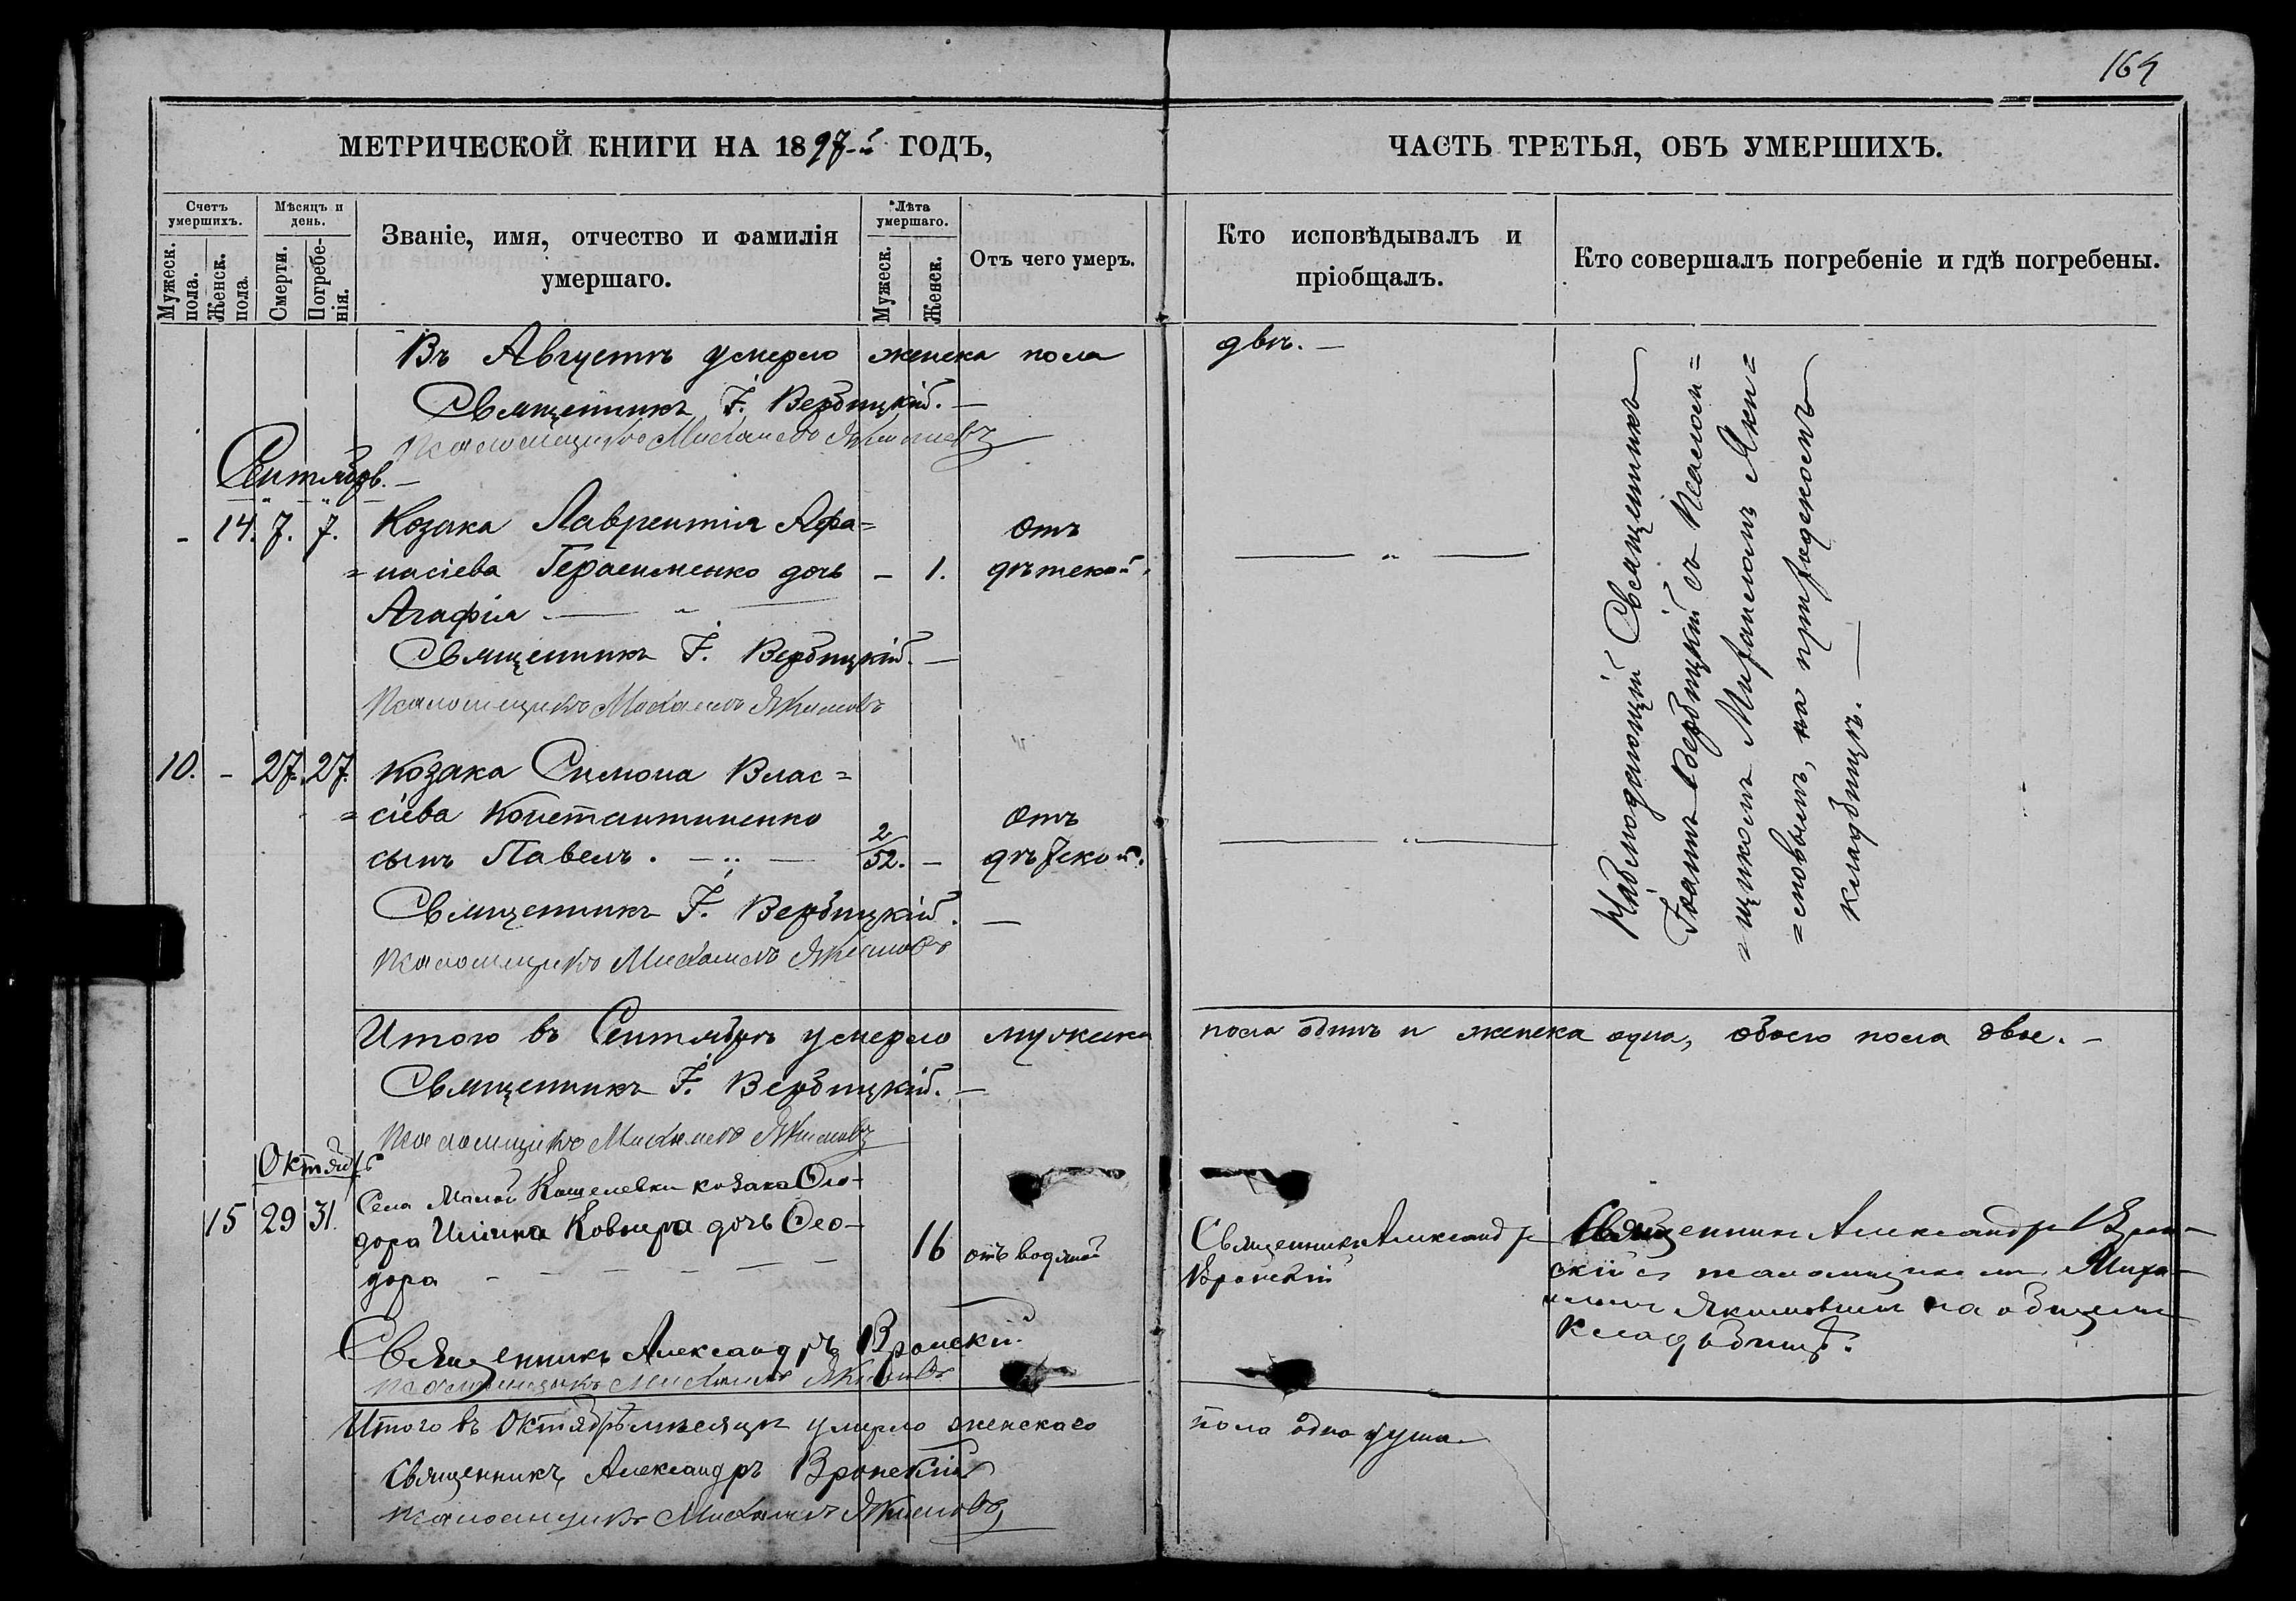 164
МЕТРИЧЕСКОЙ КНИГИ НА 1897-й ГОДЪ,
ЧАСТЬ ТРЕТЬЯ, ОБЪ УМЕРШИХЪ.
Счетъ умершихъ.
Мужеск. пола.
Женск. пола.
Мѣсяцъ и день.
Смерти.
Погребенія.
Званіе, имя, отчество и фамилія
умершаго.
Лѣта умершаго.
Мужеск.
Женск.
Отъ чего умеръ.
Кто исповѣдывалъ и
пріобщалъ.
Кто совершалъ погребеніе и гдѣ погребены.
Въ Августѣ умерло женска пола двѣ. —
Священникъ І. Вербицкій. —
Псаломщикъ Михаилъ Якимовъ
Сентябрь. —
- 14. 7. 7. Козака Лаврентія Афа=
=насіева Герасименко дочь - 1. Отъ дѣтской.
Агафія — " —
Священникъ І. Вербицкій. —
Псаломщикъ Михаилъ Якимовъ
10. - 27. 27. Козака Симона Влас=
=сіева Константиненко
сынъ Павелъ. — " — 2/52. - Отъ дѣтской.
Священникъ І. Вербицкій. —
Псаломщикъ Михаилъ Якимовъ
Священникъ
Іоаннъ Вербицкій съ Псалом=
=щикомъ Михаиломъ Яки=
=мовымъ, на приходскомъ
кладбищѣ. —
Итого въ Сентябрѣ умерло мужска пола одинъ и женска одна, обоего пола двое. —
Священникъ І. Вербицкій. —
Псаломщикъ Михаилъ Якимовъ
Октябрь
15 29 31. Села Малой Кошелевки козака Ѳео-
дора Ковнера дочь Ѳео-
дора — 16 отъ водяной
Священникъ Александръ
Вронскій
Священникъ Александръ Врон-
скій съ псаломщикомъ Миха-
иломъ Якимовымъ на общемъ
кладбищѣ.
Священникъ Александръ Вронскій
Псаломщикъ Михаилъ Якимовъ
Итого въ Октябрѣ мѣсяцѣ умерло женскаго пола одна душа
Священникъ Александръ Вронскій
Псаломщикъ Михаилъ Якимовъ